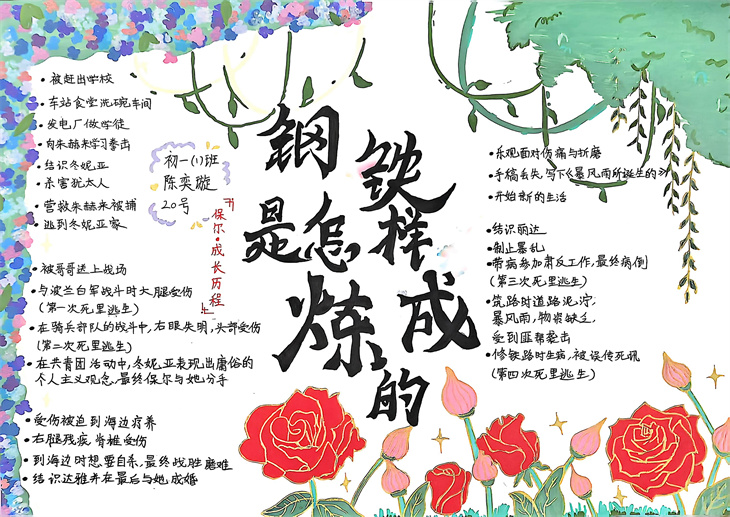 被赶出学校
车站食堂洗碗车间
发电厂做学徒
向朱赫来学习拳击
结识冬妮亚
杀害犹太人
营救朱赫来被捕
逃到冬妮亚家
初一(1)班
陈奕璇
20号
『保尔·成长历程』
钢铁是怎样炼成的
被哥哥送上战场
与波兰白军战斗时大腿受伤
(第一次死里逃生)
在骑兵部队的战斗中,右眼失明,头部受伤
(第二次死里逃生)
在共青团活动中,冬妮亚表现出庸俗的
个人主义观念,最终保尔与她分手
受伤被迫到海边疗养
右腿残疾,脊椎受伤
到海边时想要自杀,最终战胜磨难
结识达雅并在最后与她成婚
乐观面对伤痛与折磨
手稿丢失,写下《暴风雨所诞生的》
开始新的生活
结识丽达
制止暴乱
带病参加肃反工作,最终病倒
(第三次死里逃生)
筑路时道路泥泞,
暴风雨,物资缺乏,
受到匪帮袭击
修铁路时生病,被误传死讯
(第四次死里逃生)